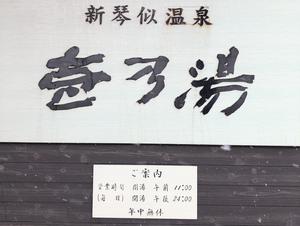 新琴似温泉
壺乃湯
ご案内
営業時間 開湯 午前 11:00
(毎日) 閉湯 午後 24:00
年中無休